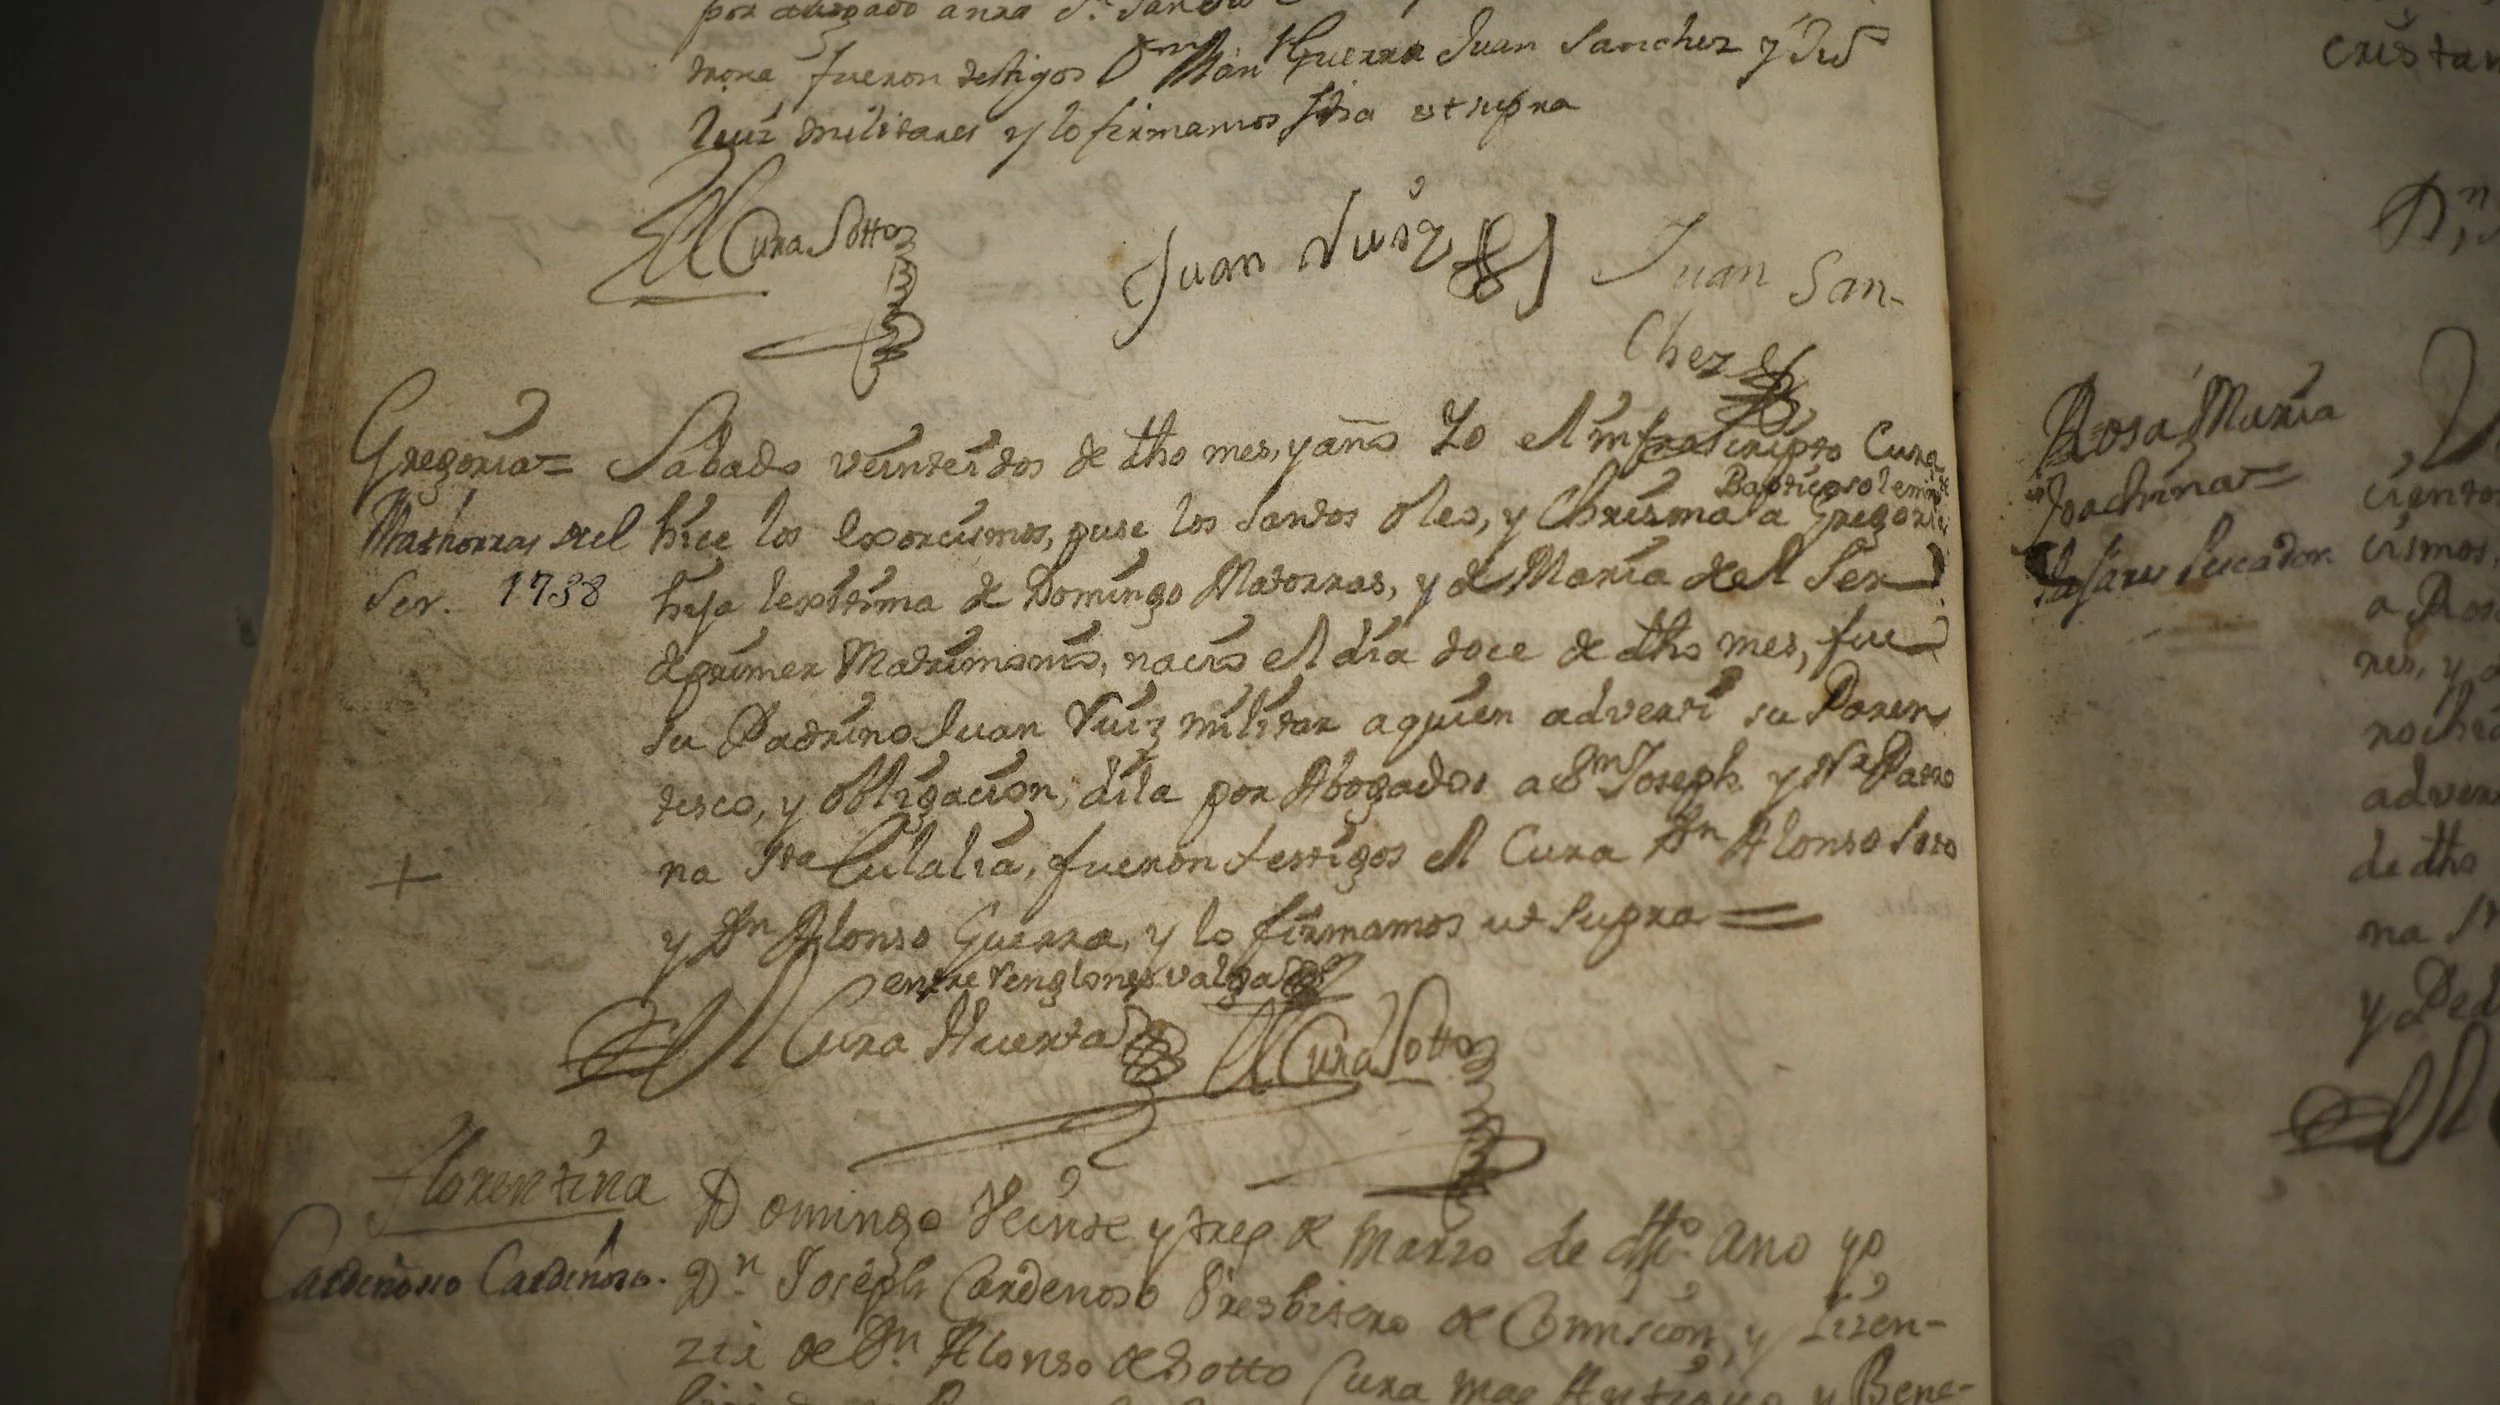 por abogado a nra S.ra
trona fueron testigos Dn Alon Guerra Juan Sanchez y Jun
Ruiz militares y lo firmamos fha ut supra
El Cura Sotto
Juan Ruiz
Juan San-
chez
Gregoria=
Mathorras del
Ser. 1738
Sabado veinteidos de dho mes, y año Yo el infrascripto Cura
Baptice solemne
hice los exorcismos, puse los Santos Oleo, y Chrisma a Gregoria
hija lexitima de Domingo Matorras, y de Maria del Ser
de primer Matrimonio, nacio el dia doce de dho mes, fue
su Padrino Juan Ruiz militar a quien adverti su Paren
tesco, y obligacion, dila por Abogados a Sn Joseph y Nra Patro
na Sta Eulalia, fueron testigos el Cura Dn Alonso Soto
y Dn Alonso Guerra, y lo firmamos ut supra=
entre renglones valga
El Cura Huerta
El Cura Sotto
Florentina
Cardeñoso Cardeñoso.
Domingo Veinte y tres de Marzo de dho Ano yo
Dn Joseph Cardenoso Presbitero de Comision, y Lizen-
zia de Dn Alonso de Sotto Cura mas Antiguo y Bene-
cristan
Dn
Rosa Maria
Joachina=
Pescador.
ciento
cismos,
a Ros
res, y d
noche
adver
de dho
na St
y Ped